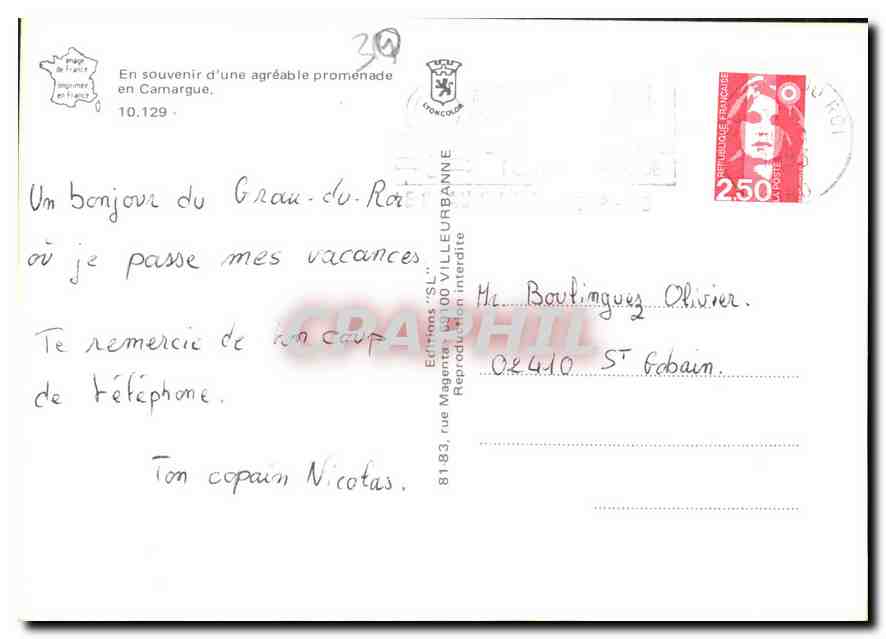 34
image
de France
imprimée
en France
En souvenir d'une agréable promenade
en Camargue.
10.129
LYONCOLOR
REPUBLIQUE FRANÇAISE
2,50
LA POSTE
DU ROI
Un bonjour du Grau-du-Roi
où je passe mes vacances
Te remercie de ton coup
de téléphone.
Ton copain Nicolas.
Editions "SL"
81-83, rue Magenta - 69100 VILLEURBANNE
Reproduction interdite
Mr. Boulinguez Olivier.
02410 St Gobain.
CPAPHIL